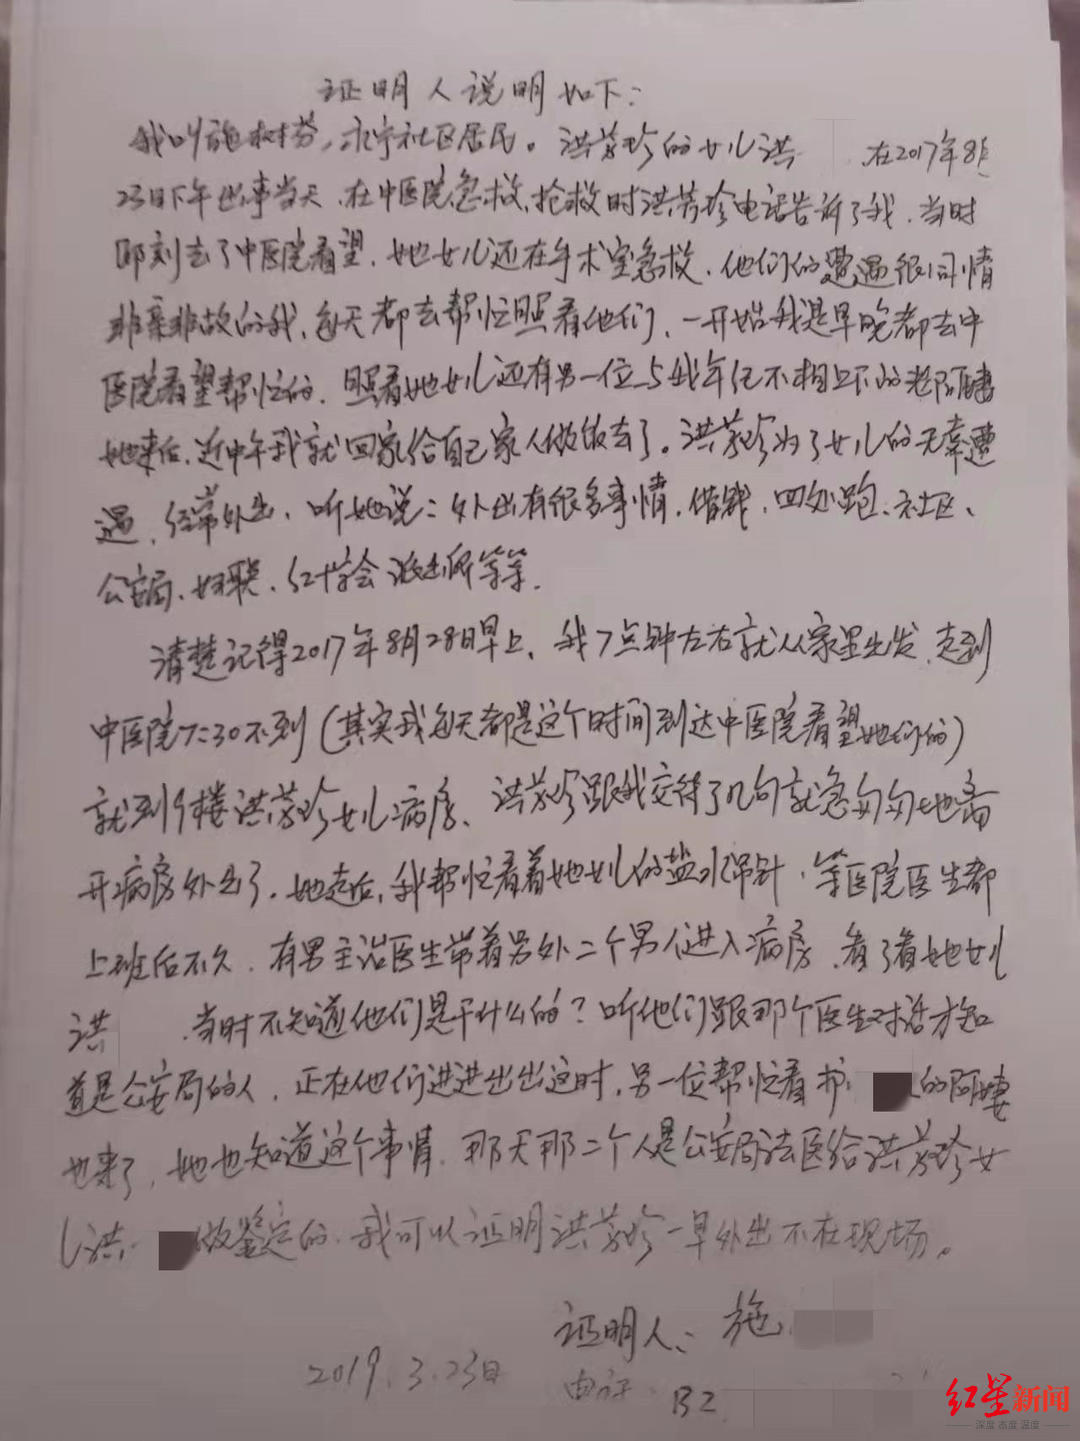 证明人说明如下：
我叫施树芬，永宁社区居民。洪芳珍的女儿洪 在2017年8月
23日下午出事当天、在中医院急救、抢救时洪芳珍电话告诉了我、当时
即刻去了中医院看望、她女儿还在手术室急救、他们的遭遇很同情
非亲非故的我、每天都去帮忙照看他们、一开始我是早晚都去中
医院看望帮忙的、照看她女儿还有另一位与我年纪不相上下的老阿姨
她来后、近中午我就回家给自己家人做饭去了。洪芳珍为了女儿的无辜遭
遇、经常外出、听她说：外出有很多事情、借钱、四处跑、社区、
公安局、妇联、红十字会 派出所等等.
清楚记得2017年8月28日早上、我7点钟左右就从家里出发、走到
中医院7:30不到(其实我每天都是这个时间到达中医院看望她们的)
就到9楼洪芳珍女儿病房、洪芳珍跟我交待了几句就急匆匆地离
开病房外出了. 她走后, 我帮忙看着她女儿的盐水吊针、等医院医生都
上班后不久、有男主治医生带着另外二个男人进入病房、看了看她女儿
洪 、当时不知道他们是干什么的？听他们跟那个医生对话才知
道是公安局的人、正在他们进进出出这时、另一位帮忙看护 的阿姨
也来了、她也知道这个事情、那天那二个人是公安局法医给洪芳珍女
儿洪 做鉴定的、我可以证明洪芳珍一早外出不在现场。
证明人：施
2019.3.23日
电话： 132
红星新闻
深度 态度 温度